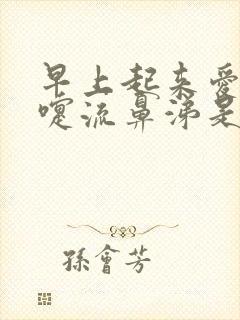 早上起来爱
嚏流鼻涕是
孫會芳